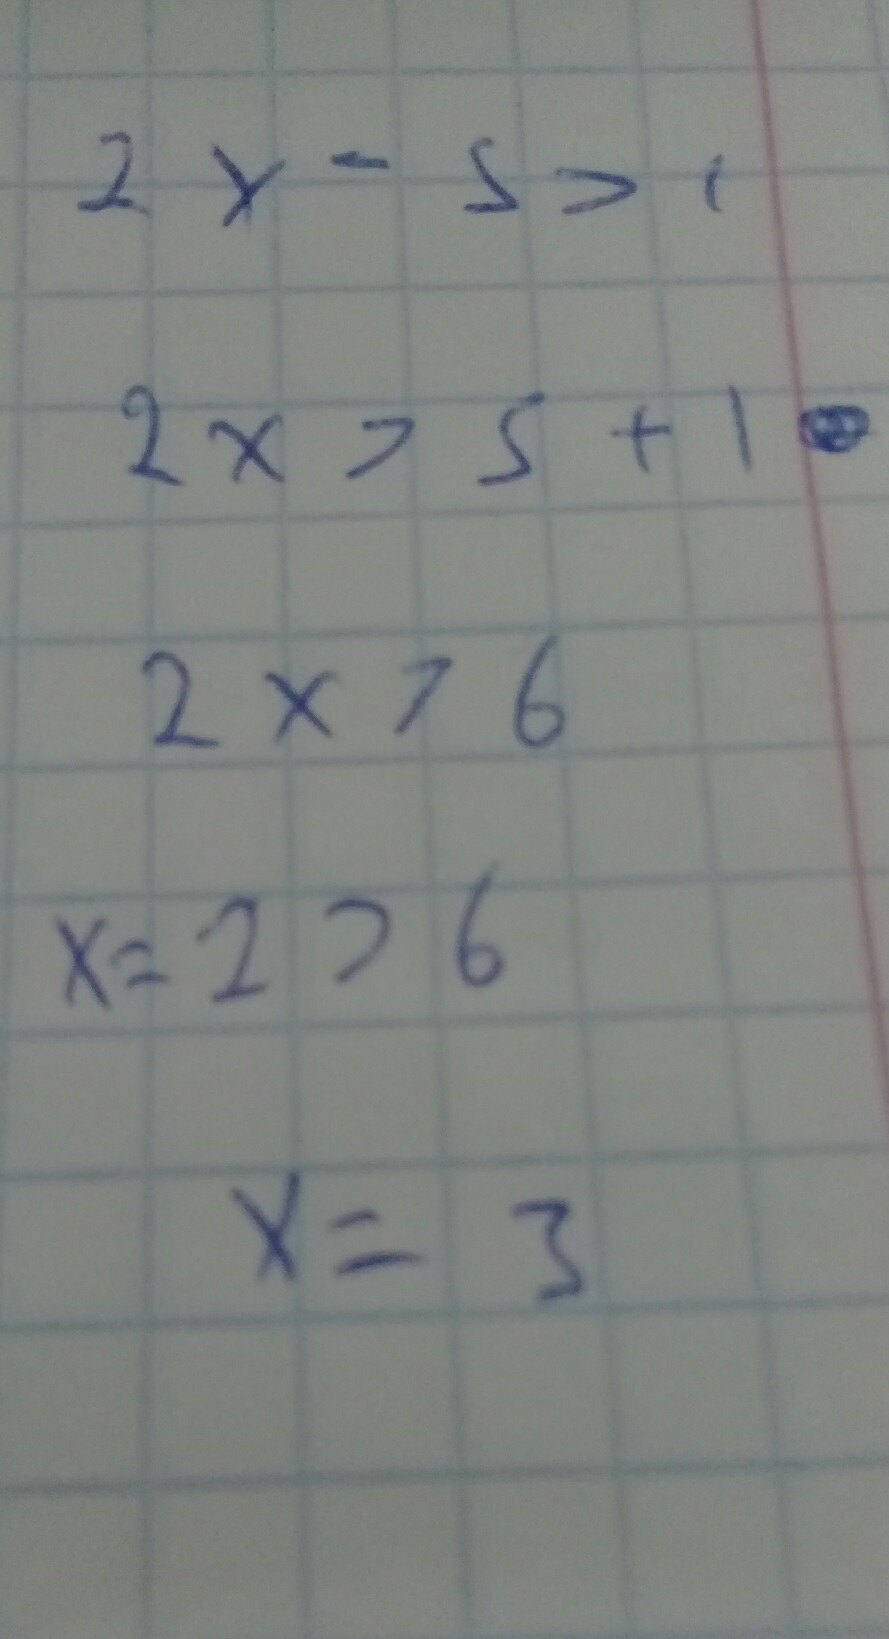 2x - 5 > 1
2x > 5 + 1
2x > 6
x = 2 > 6
x = 3